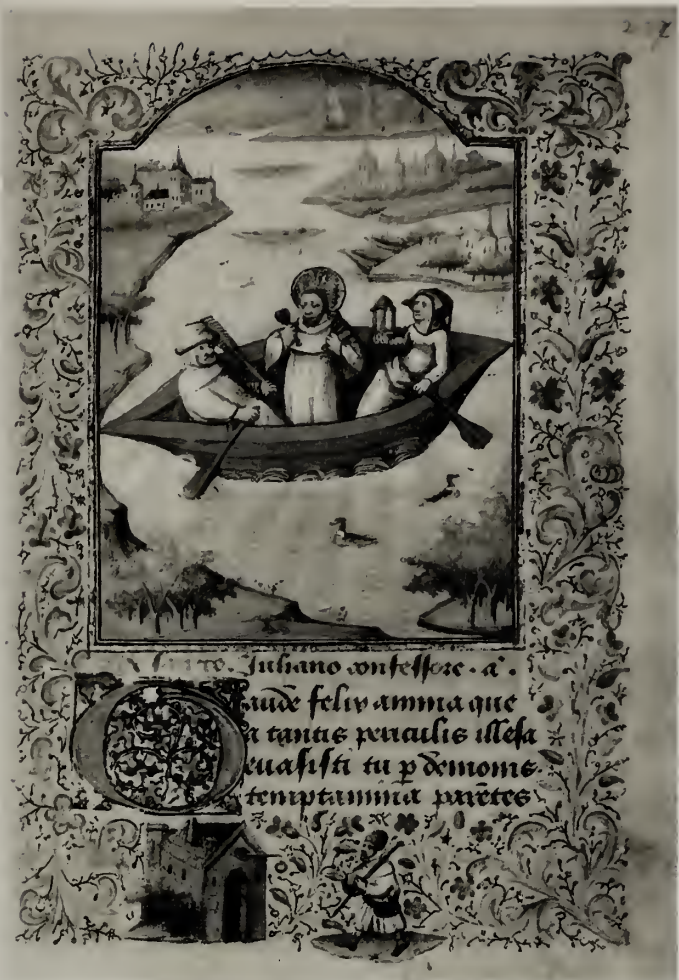 Juliano confessore · a ·
Gaude felix anima que
a tantis periculis illesa
euasisti tu p̄ demonis
temptamina parētes